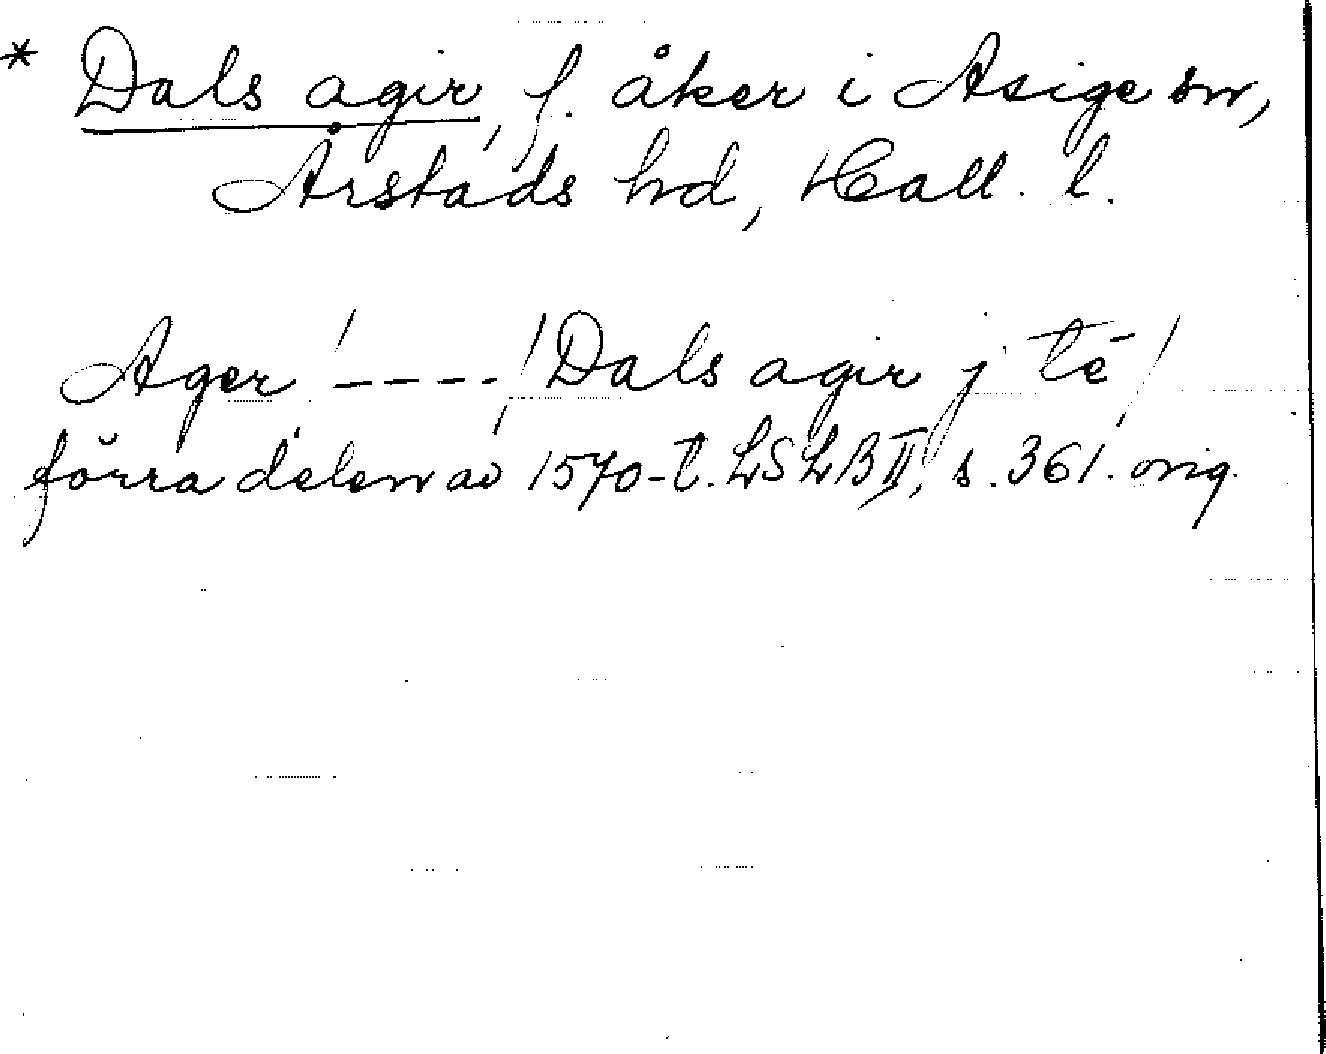 * Dals agir, f. åker i Asige sn,
Årstads hd, Hall. l.
Ager / ---- / Dals agir j té /
förra delen av 1570-t. LSLB II, s. 361. orig.